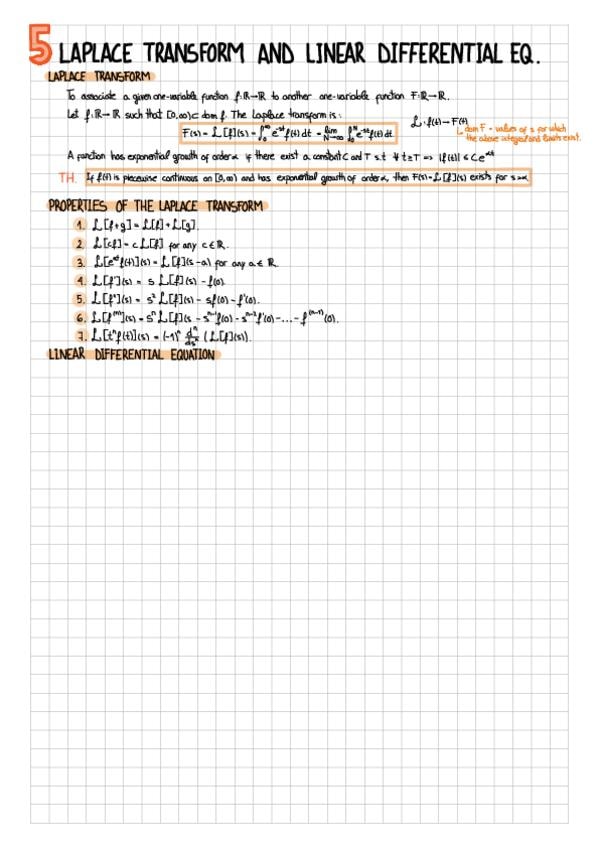 5 LAPLACE TRANSFORM AND LINEAR DIFFERENTIAL EQ.
LAPLACE TRANSFORM
To associate a given one-variable function f:ℝ→ℝ to another one-variable function F:ℝ→ℝ.
Let f:ℝ→ℝ such that [0,∞)⊂ dom f. The Laplace transform is:
ℒ: f(t)→F(t)
F(s) = ℒ[f](s) = ∫₀^∞ e^-st f(t) dt = lim N→∞ ∫₀^∞ e^-st f(t) dt
↳ dom F = values of s for which
the above integral and limits exist.
A function has exponential growth of order α if there exist a constant C and T s.t ∀ t≥T => |f(t)| ≤ Ce^αt
TH. If f(t) is piecewise continuous on [0,∞) and has exponential growth of order α, then F(s)=ℒ[f](s) exists for s>α
PROPERTIES OF THE LAPLACE TRANSFORM
1. ℒ[f+g] = ℒ[f]+ℒ[g].
2. ℒ[cf] = c ℒ[f] for any c∈ℝ.
3. ℒ[e^at f(t)](s) = ℒ[f](s-a) for any a∈ℝ.
4. ℒ[f'](s) = s ℒ[f](s) - f(0).
5. ℒ[f''](s) = s² ℒ[f](s) - sf(0) - f'(0).
6. ℒ[f^(n)](s) = s^n ℒ[f](s - s^n-1 f(0) - s^n-2 f'(0) - ... - f^(n-1)(0).
7. ℒ[t^n f(t)](s) = (-1)^n d^n/ds^n (ℒ[f](s)).
LINEAR DIFFERENTIAL EQUATION